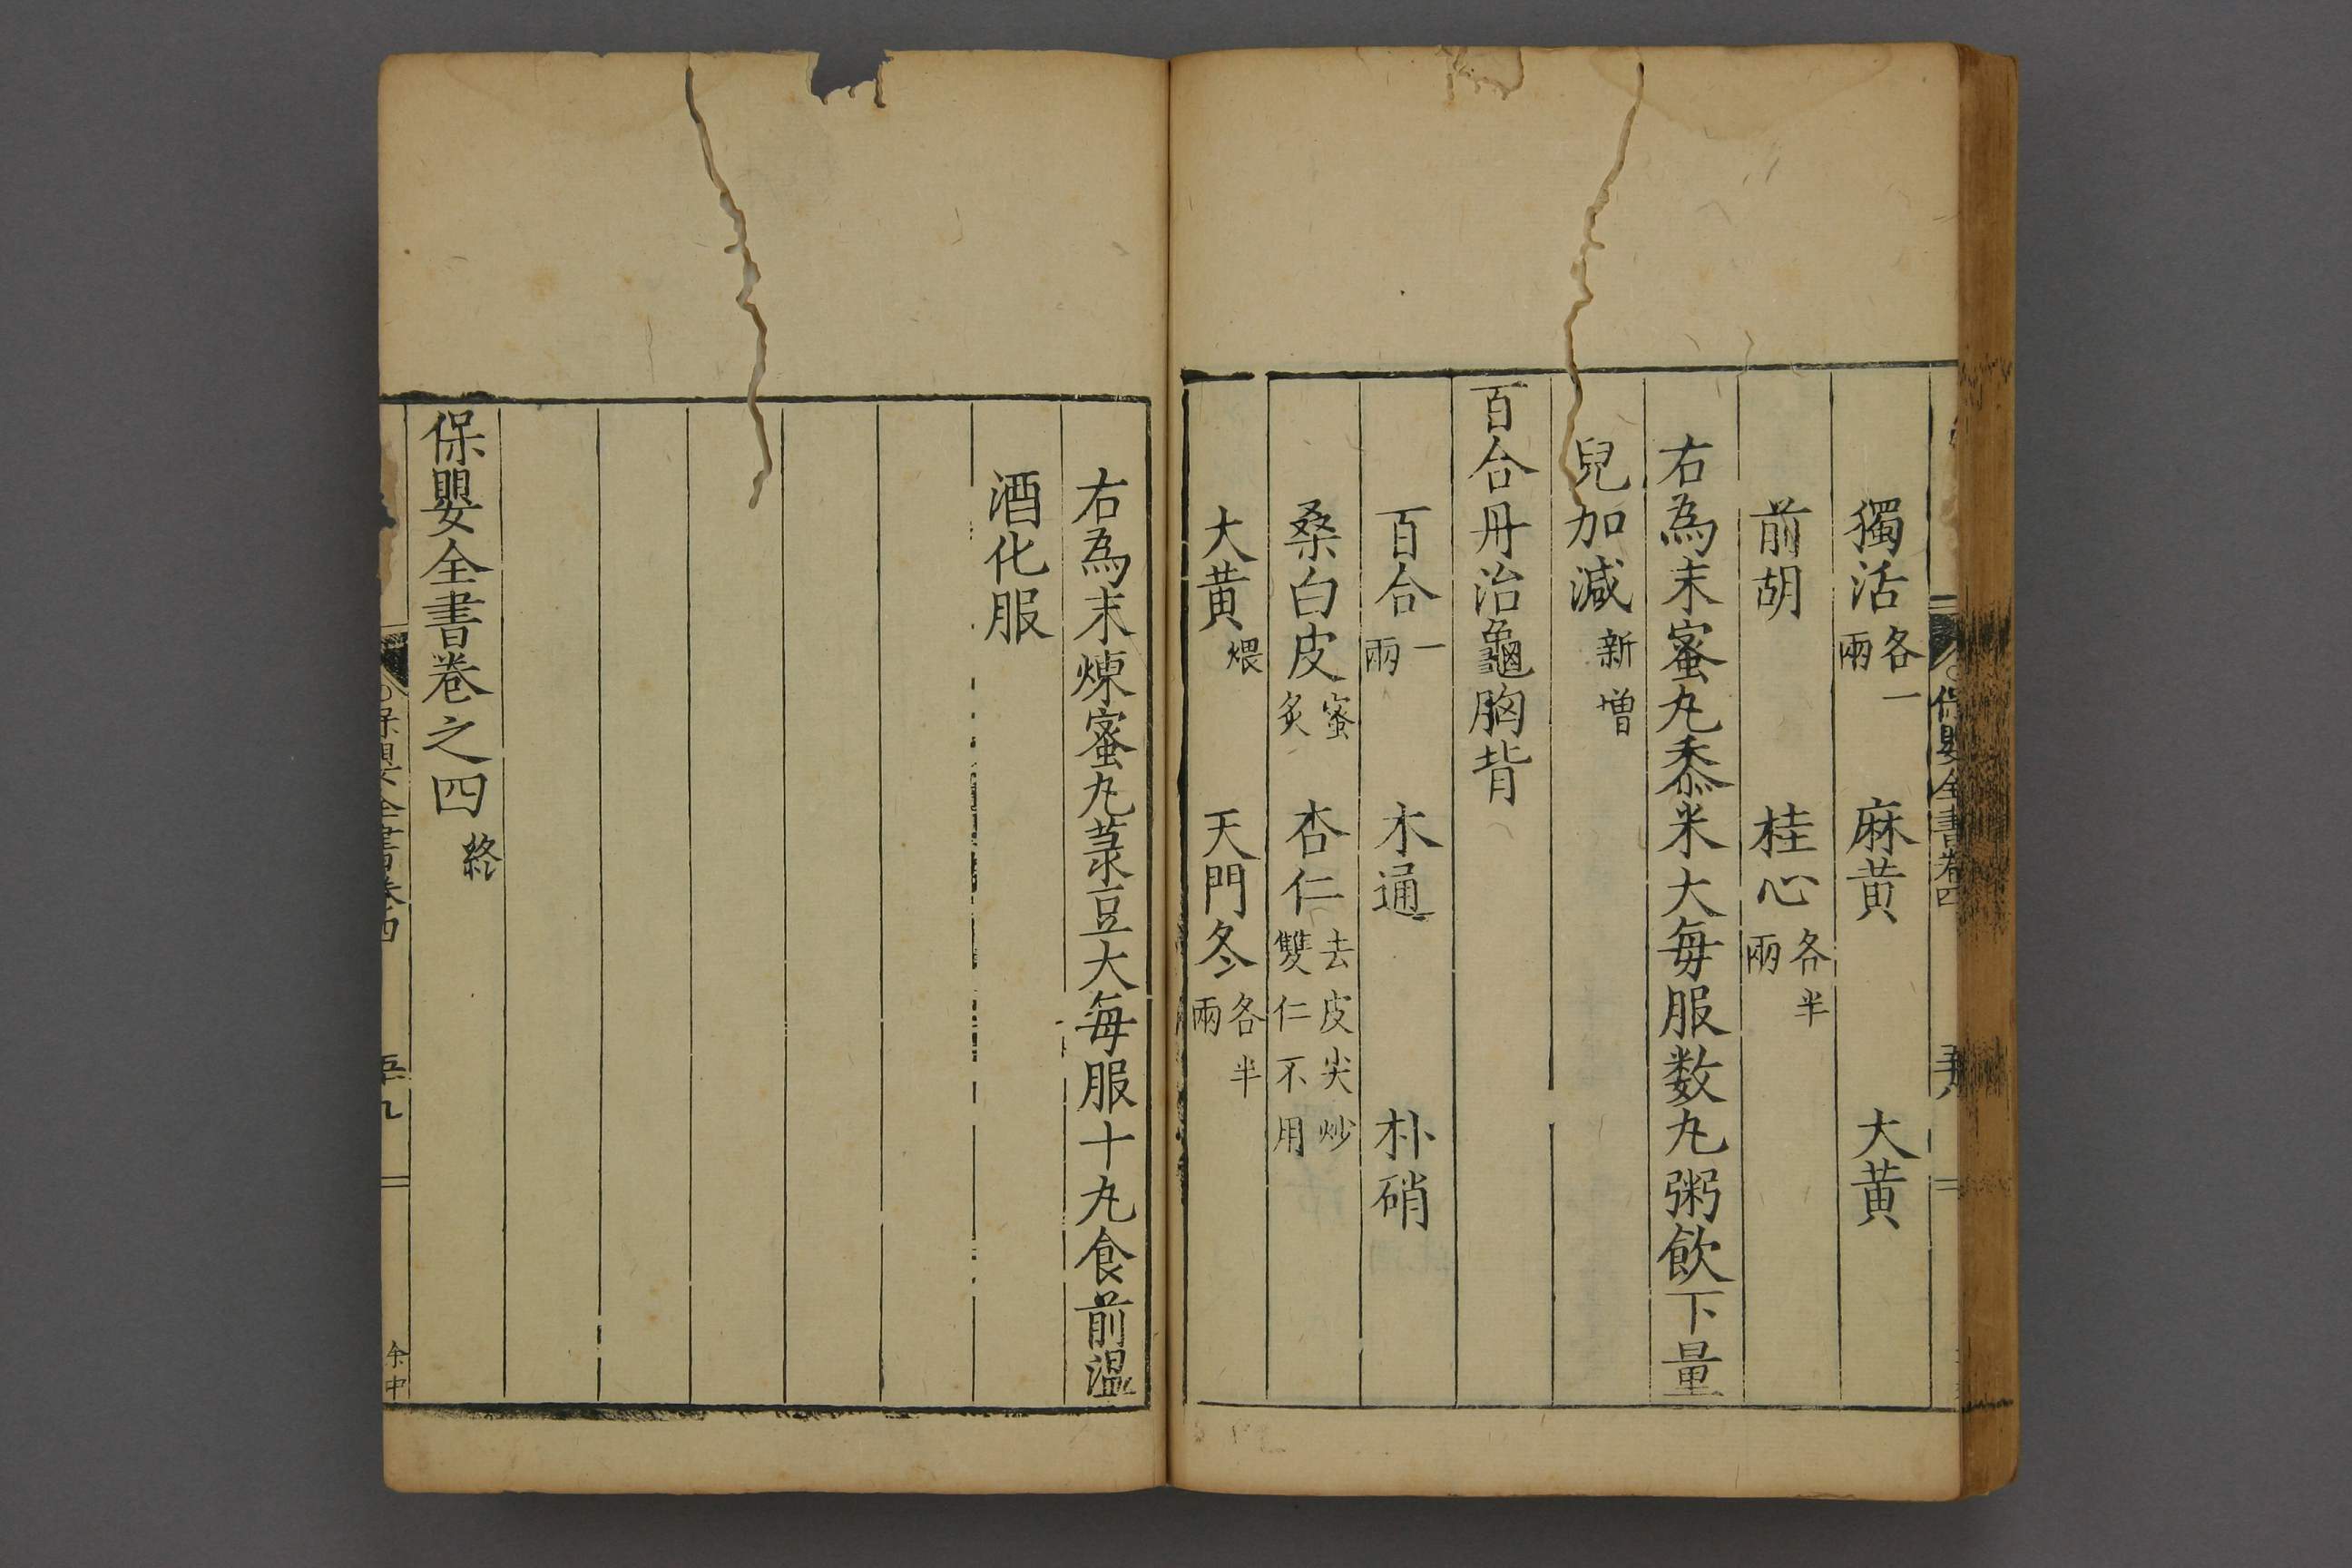 獨活各一兩 麻黄 大黄
前胡 桂心各半兩
右為末蜜丸黍米大每服数丸粥飲下量
兒加減新增
百合丹治龜胸背
百合一兩 木通 朴硝
桑白皮蜜炙 杏仁去皮尖炒雙仁不用
大黄煨 天門冬各半兩
右為末煉蜜丸菉豆大每服十丸食前温
酒化服
保嬰全書卷之四終
保嬰全書卷四
保嬰全書卷四
五九
余中